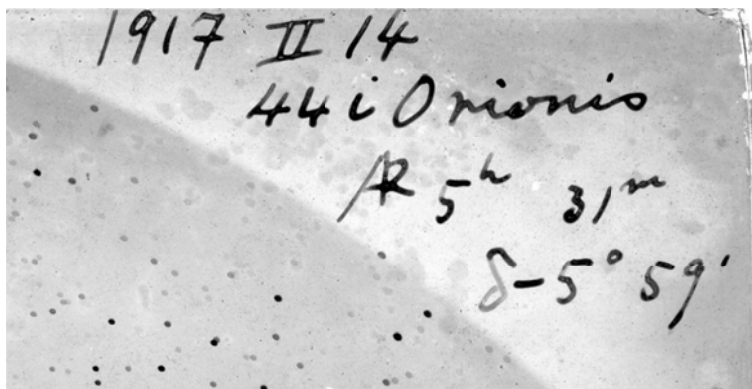 1917 II 14
44 i Orionis
AR 5ʰ 31ᵐ
δ-5° 59'